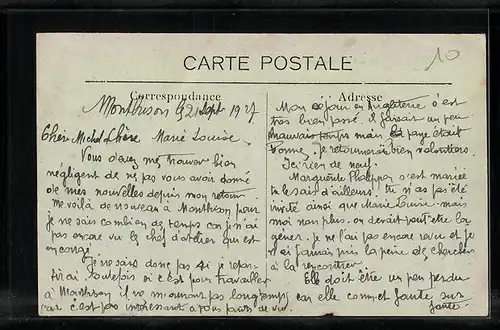 10
CARTE POSTALE
Correspondance
Adresse
Montbrison 21 Sept 1927
Chère Marie Louise
Vous devez me trouver bien
négligent de ne pas vous avoir donné
de mes nouvelles depuis mon retour
me voilà de nouveau à Montbrison pour
je ne sais combien de temps car je n'ai
pas encore vu le chef d'atelier qui est
en congé.
Je ne sais donc pas si je repar-
tirai toutefois si c'est pour travailler
à Montbrison il ne mourront pas longtemps
car c'est pas intéressant à vous parler de
Mon séjour en Angleterre s'est
très bien passé. Il faisait un peu
mauvais temps mais la paye était
bonne. Je retournerai bien volontiers.
Ici rien de neuf.
Marguerite s'est mariée
tu le sais d'ailleurs tu n'as pas été
invité ainsi que Marie Louise mais
moi non plus. on devait peut être la
gêner. je ne l'ai pas encore revue et je
n'ai jamais pris la peine de chercher
à la rencontrer
Elle doit être un peu perdue
car elle commet faute sur
faute.